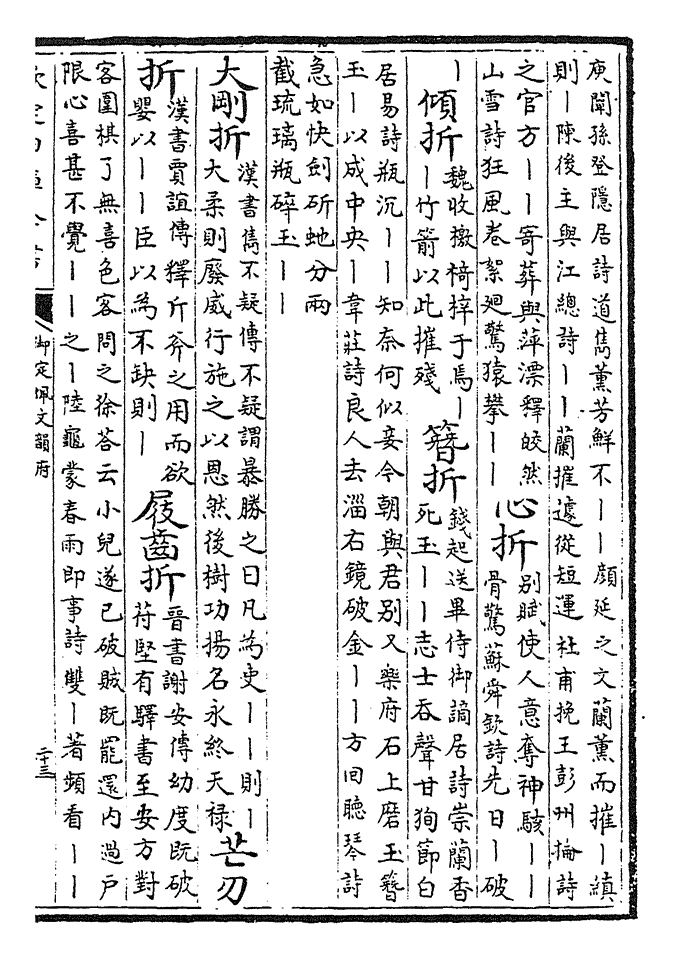 庾闡孫登隱居詩道雋薰芳鮮不丨丨顏延之文蘭薰而摧丨縝
則丨陳後主與江總詩丨丨蘭摧遽從短運杜甫挽王彭州掄詩
之官方丨丨寄葬與萍漂釋皎然
山雪詩狂風卷絮迴驚猿攀丨丨
心折
別賦使人意奪神駭丨丨
骨驚蘇舜欽詩先日丨破
丨
傾折
魏收檄椅梓于焉丨
丨竹箭以此摧殘
簪折
錢起送畢侍御謫居詩崇蘭香
死玉丨丨志士吞聲甘狥節白
居易詩瓶沉丨丨知奈何似妾今朝與君別又樂府石上磨玉簪
玉丨以成中央丨韋莊詩良人去淄右鏡破金丨丨方回聽琴詩
急如快劍斫虵分兩
截琉璃瓶碎玉丨丨
大剛折
漢書雋不疑傳不疑謂暴勝之曰凡為吏丨丨則丨
大柔則廢威行施之以恩然後樹功揚名永終天祿
芒刃
折
漢書賈誼傳釋斤斧之用而欲
嬰以丨丨臣以為不缺則丨
屐齒折
晉書謝安傳幼度既破
苻堅有驛書至安方對
客圍棋了無喜色客問之徐荅云小兒遂已破賊既罷還内過戶
限心喜甚不覺丨丨之丨陸龜蒙春雨即事詩雙丨著頻看丨丨
御定佩文韻府
二十三